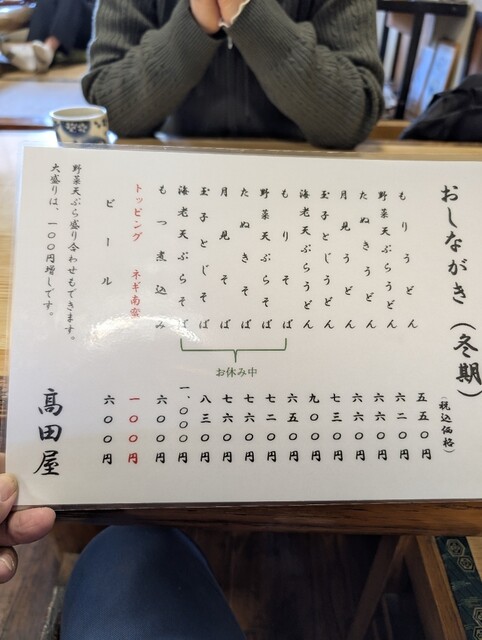 おしながき(冬期)
(税込価格)
もりうどん 五五〇円
野菜天ぷらうどん 六二〇円
たぬきうどん 六六〇円
月見うどん 六六〇円
玉子とじうどん 七三〇円
海老天ぷらうどん 九〇〇円
もりそば 六五〇円
野菜天ぷらそば 七二〇円
たぬきそば 七六〇円
月見そば 七六〇円
玉子とじそば 八三〇円
海老天ぷらそば 一、〇〇〇円
お休み中
もつ煮込み 六〇〇円
トッピング ネギ南蛮 一〇〇円
ビール 六〇〇円
野菜天ぷら盛り合わせもできます。
大盛りは、一〇〇円増しです。
高田屋